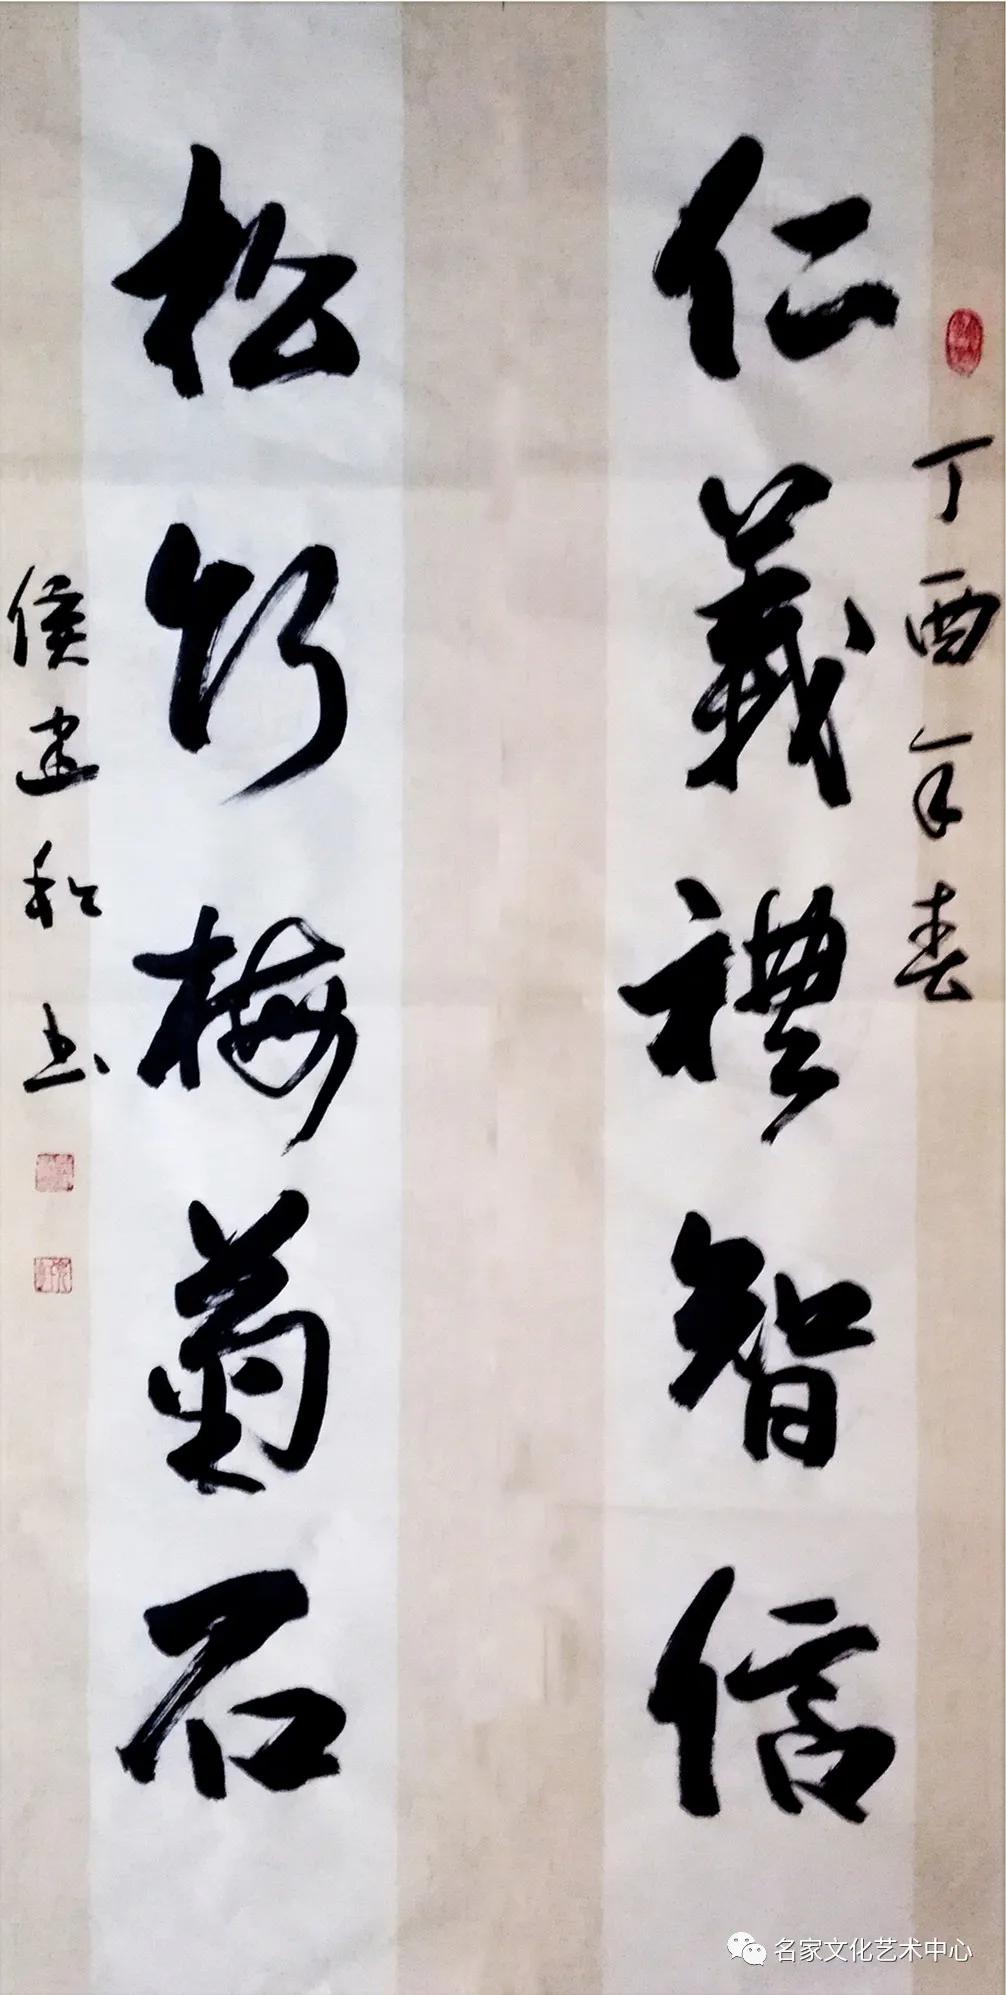 丁酉年春
仁義禮智信
松竹梅菊石
侯建和书
名家文化艺术中心